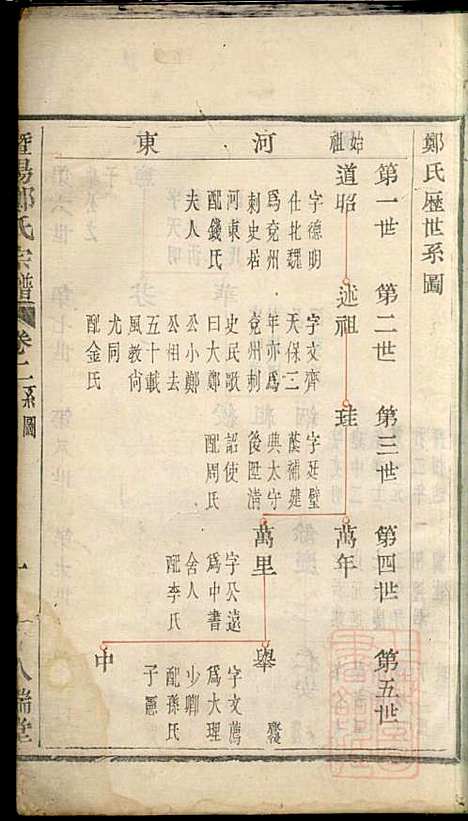 鄭氏歷世系圖
第一世
第二世
第三世
第四世
第五世
始祖
河東
道昭
字德明
仕北魏
為兗州
刺史居
河東氏
配錢氏
夫人
述祖
字文齊
天保二
年亦為
兗州刺
史民歌
曰大鄭
公小鄭
公相去
五十載
風教尚
尤同
配金氏
珪
字廷璧
蔭補建
典太守
後陞清
詔使
配周氏
萬年
萬里
字公遠
為中書
舍人
配李氏
舉
字文薦
為大理
少卿
配孫氏
子憲
中
暨陽鄭氏宗譜
卷二
系圖
一
八瑞堂